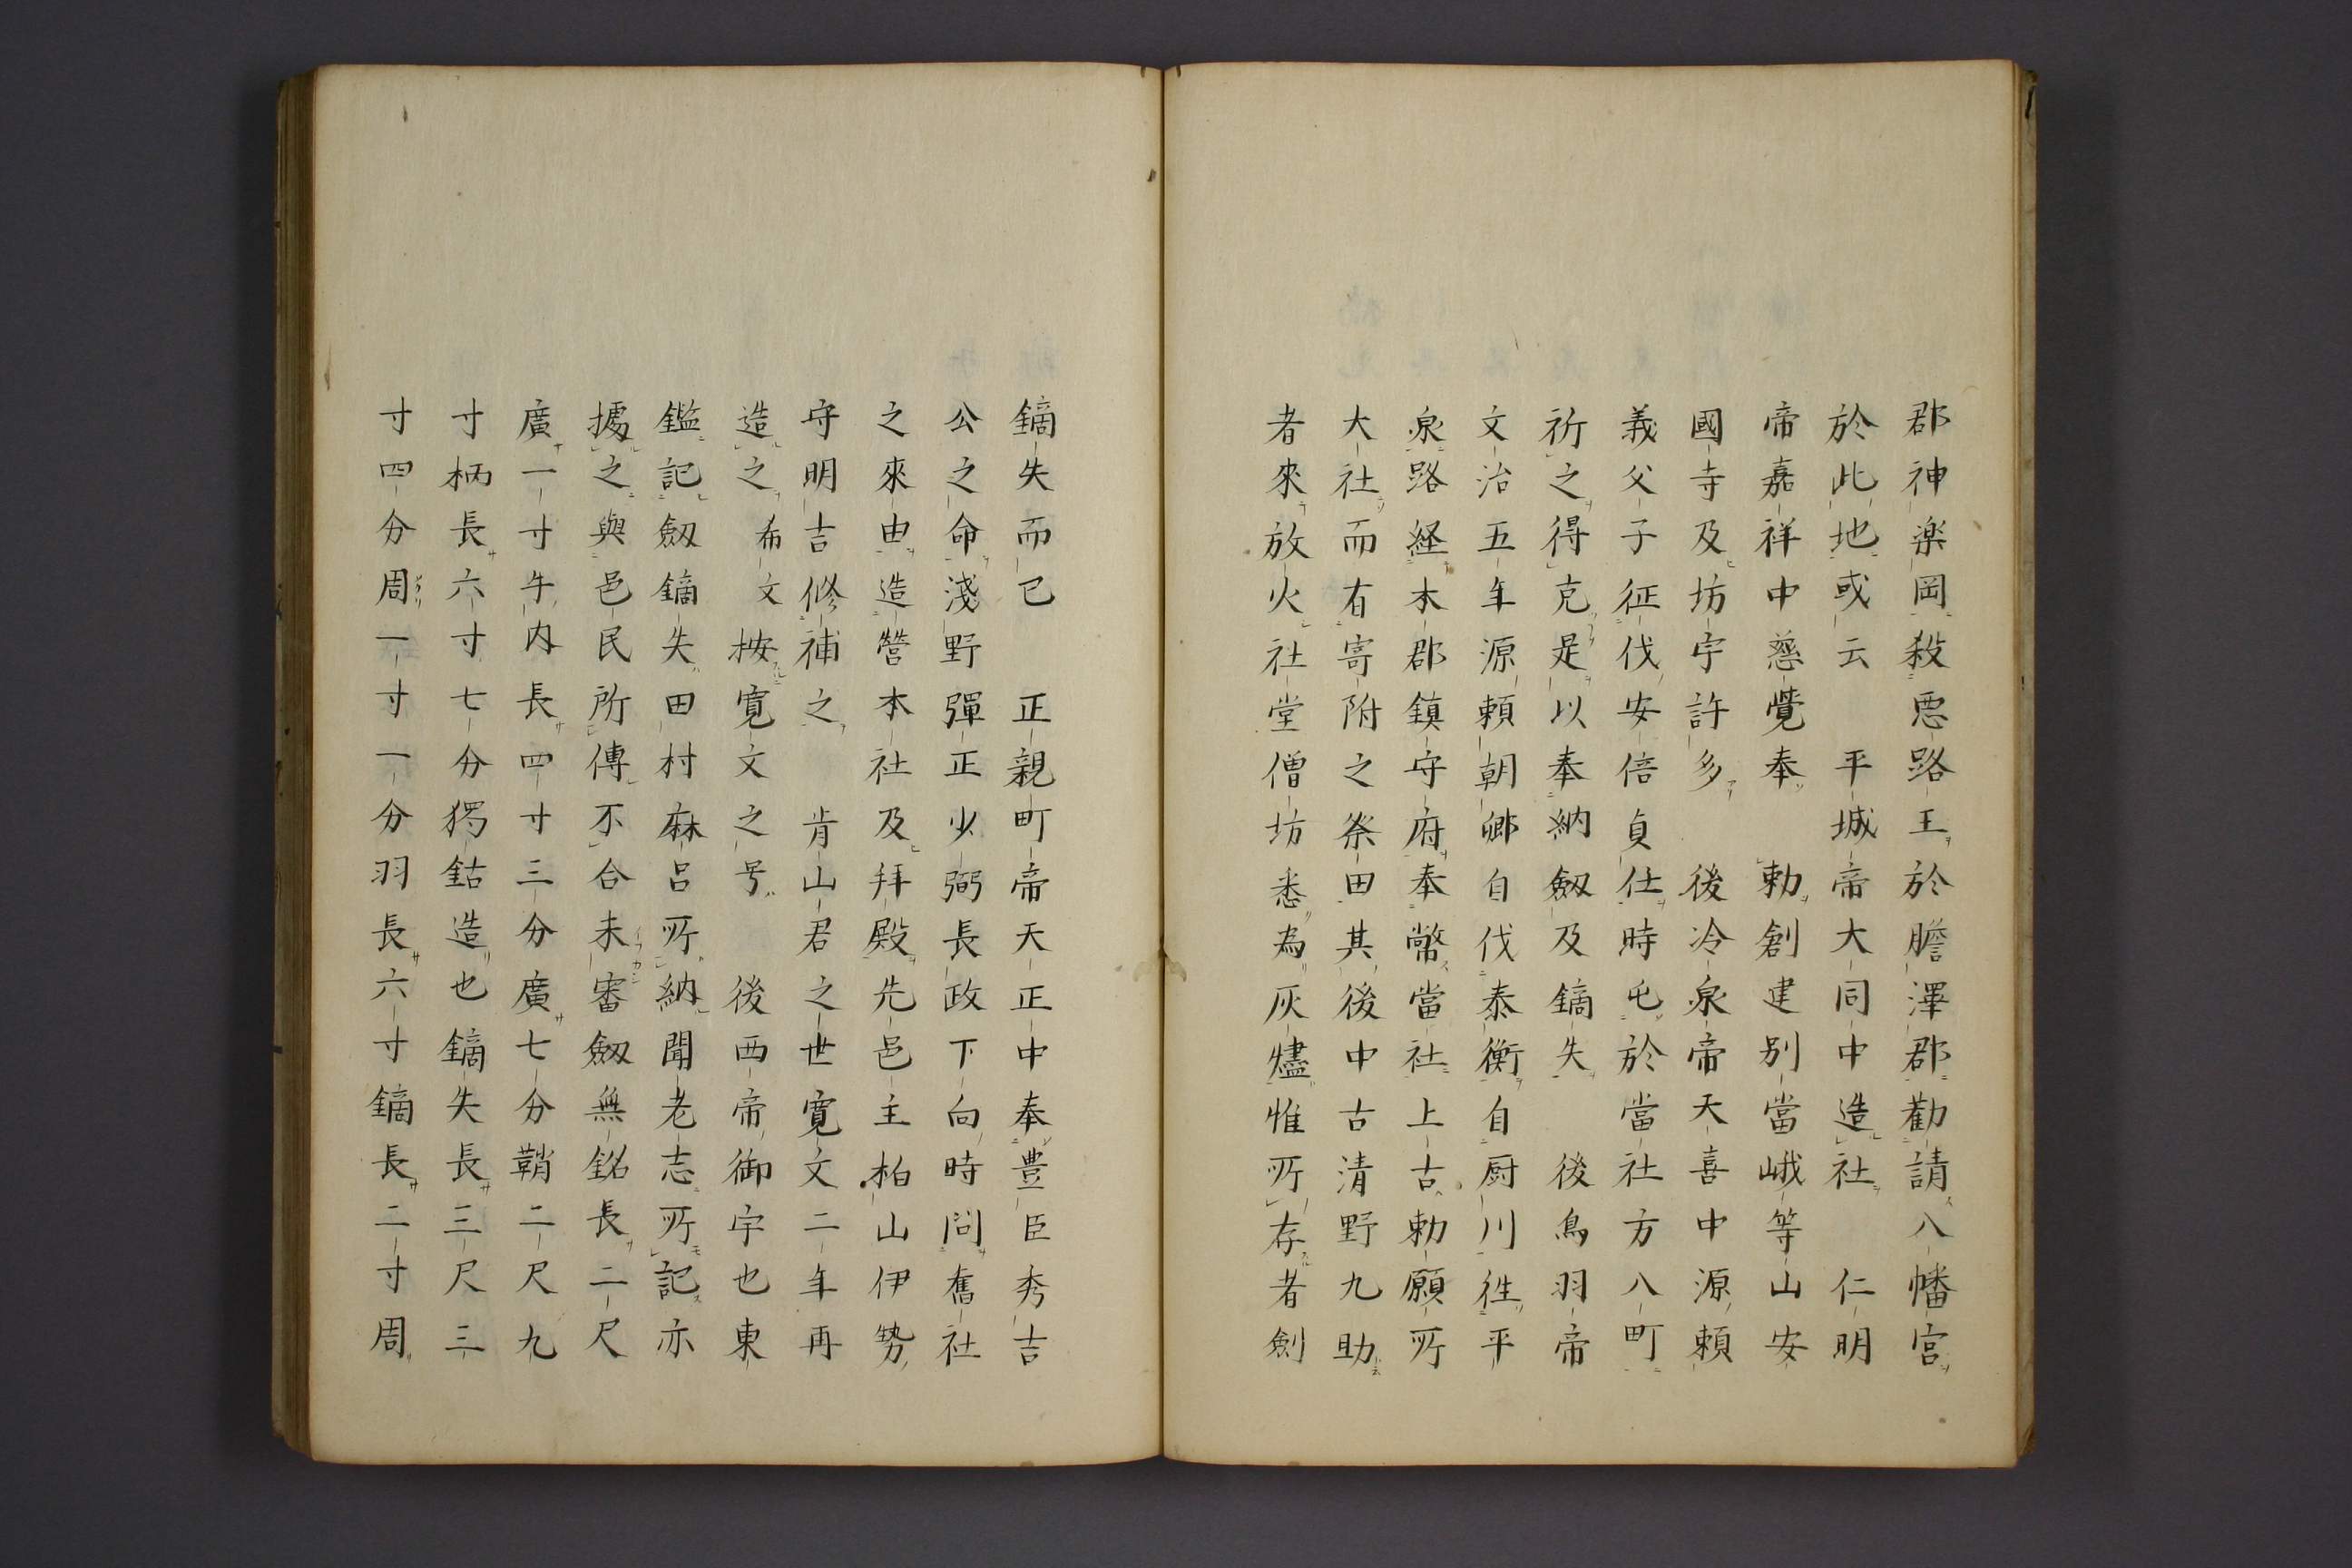 郡神楽岡殺悪路王於膽澤郡勸請八幡宮
於此地或云　平城帝大同中造社　仁明
帝嘉祥中慈覺奉　勅創建別當峨等山安
國寺及坊宇許多　後冷泉帝天喜中源頼
義父子征伐安倍貞仕時屯於當社方八町
祈之得克是以奉納劔及鏑失　後鳥羽帝
文治五年源頼朝卿自伐泰衡自厨川徃平
泉路経本郡鎮守府奉幣當社上古勅願所
大社而有寄附之祭田其後中古清野九助
者來放火社堂僧坊悉為灰燼惟所存者劍
鏑失而已　正親町帝天正中奉豊臣秀吉
公之命淺野彈正少弼長政下向時問舊社
之來由造營本社及拜殿先邑主柏山伊勢
守明吉修補之　肯山君之世寛文二年再
造之希文桉寛文之号　後西帝御宇也東
鑑記劔鏑失田村麻呂所納聞老志所記亦
據之與邑民所傳不合未審劔無銘長二尺
廣一寸半内長四寸三分廣七分鞘二尺九
寸柄長六寸七分獨鈷造也鏑失長三尺三
寸四分周一寸一分羽長六寸鏑長二寸周